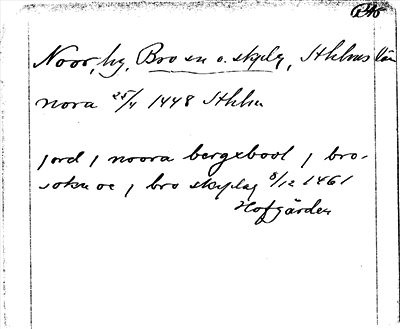 Bro
Noor, by, Bro sn o. skplg, Sthlms län
nora 25/4 1448 Sthlm
jord j noora bergxboot j bro-
sokn oc j bro skyplag 8/12 1461
Hofgården